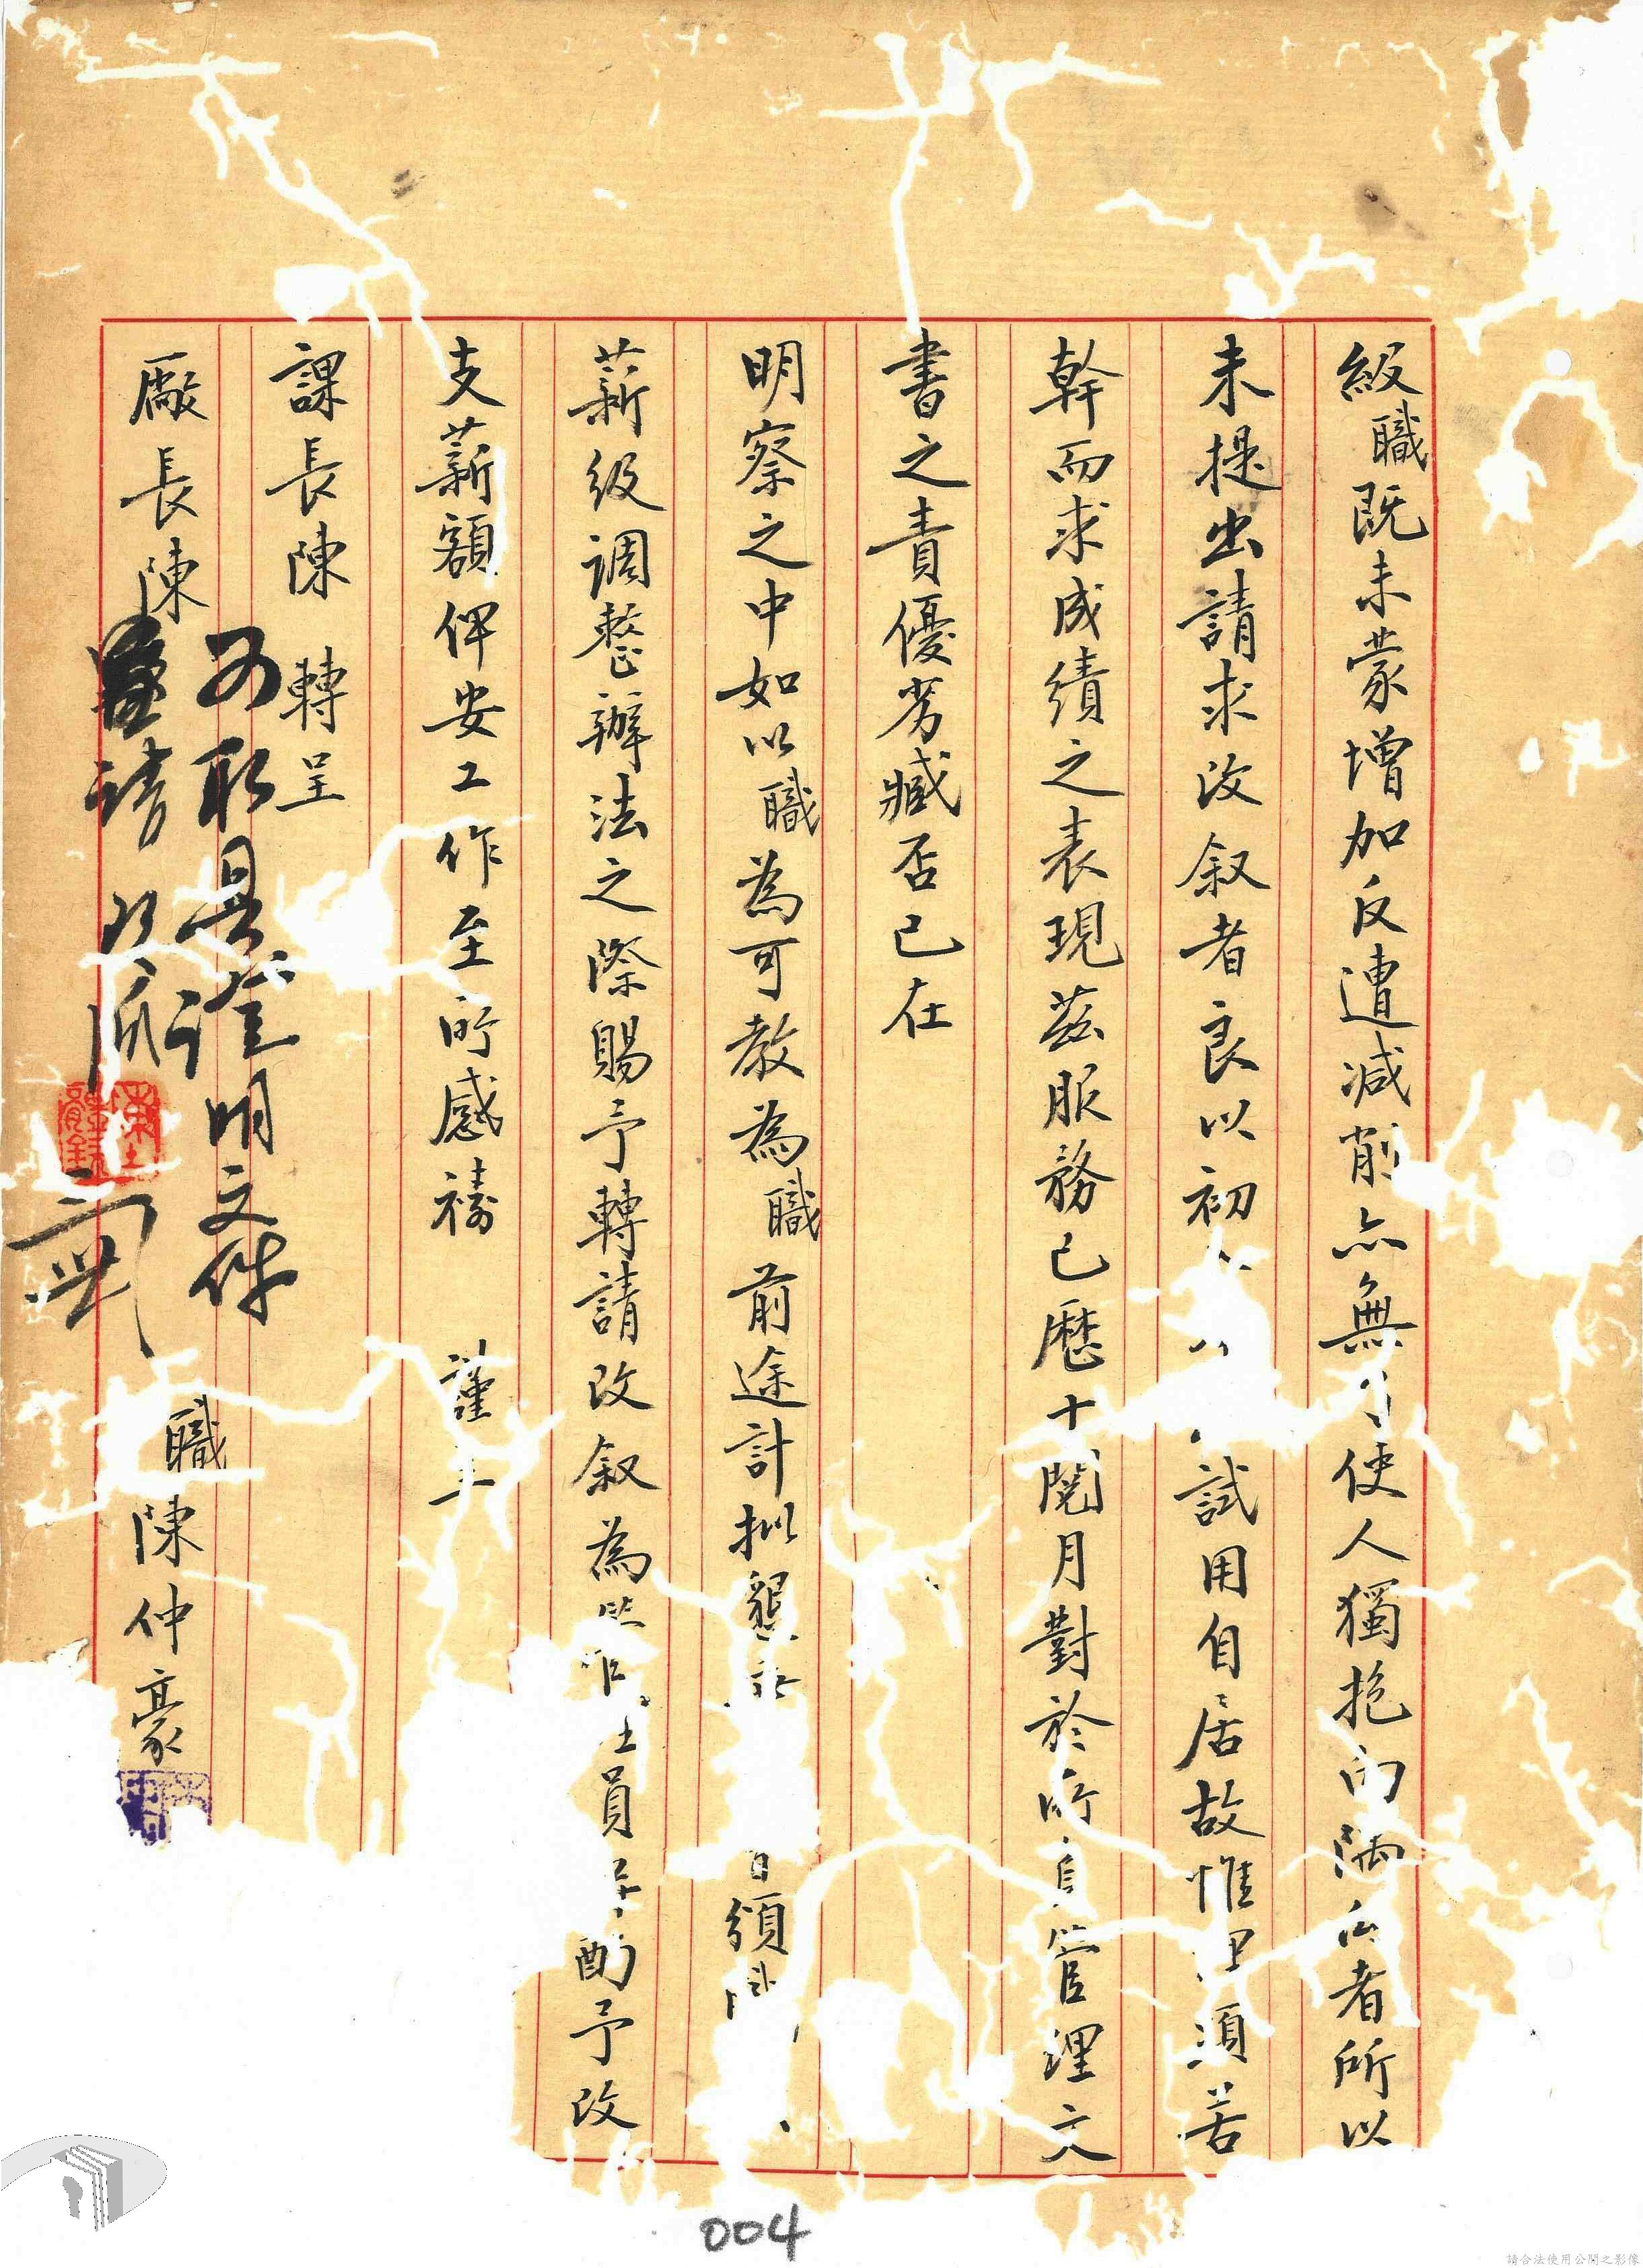 級職既未蒙增加反遭減削亦無使人獨抱向隅者所以
未提出請求改叙者良以初試用自居故惟須苦
幹而求成績之表現茲服務已歷十閱月對於所負管理文
書之責優劣臧否已在
明察之中如以職為可教為職前途計拟懇頒
薪級調整辦法之際賜予轉請改叙為員酌予改
支薪額俾安工作至所感禱 謹上
課長陳 轉呈
廠長陳
職陳仲豪
可取具證明文件
請
004
請合法使用公開之影像